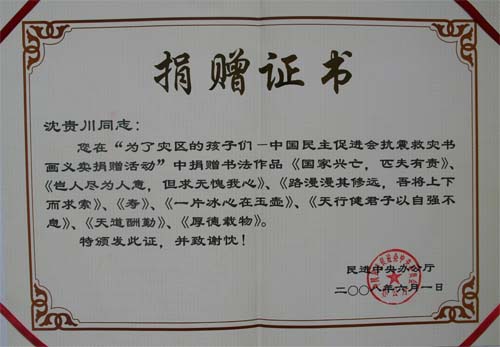 捐赠证书
沈贵川同志：
您在“为了灾区的孩子们－中国民主促进会抗震救灾书
画义卖捐赠活动”中捐赠书法作品《国家兴亡，匹夫有责》、
《岂人尽为人意，但求无愧我心》、《路漫漫其修远，吾将上下
而求索》、《寿》、《一片冰心在玉壶》、《天行健君子以自强不
息》、《天道酬勤》、《厚德载物》。
特颁发此证，并致谢忱！
民进中央办公厅
二〇〇八年六月一日